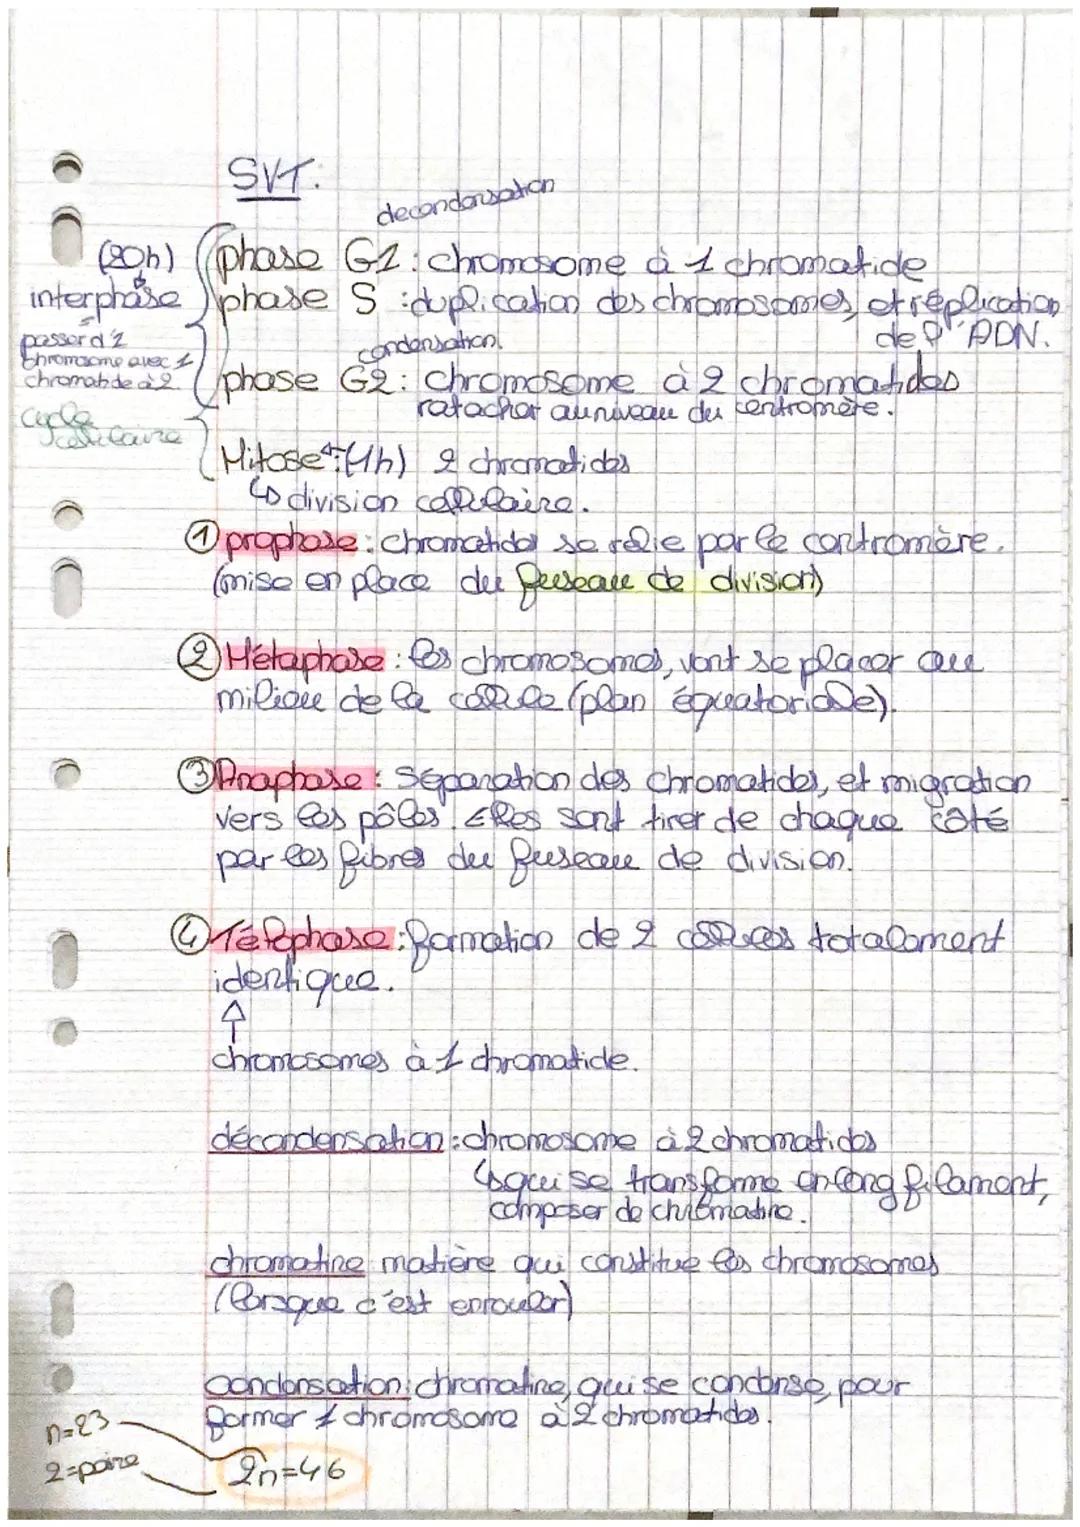 SVT.
decondensation
(20h)
phase G1 : chromosome à 1 chromatide
interphase
phase S : duplication des chromosomes, et réplication
de l'ADN.
passer d'1
chromosome avec 1
chromatide à 2
condensation.
phase G2 : chromosome à 2 chromatides
ratacher au niveau du centromère.
cycle
cellulaire
Mitose : (1h) 2 chromatides
↳ division cellulaire.
① prophase : chromatides se relie par le contromère.
(mise en place du fuseau de division)
② Métaphase : les chromosomes, vont se placer au
milieu de la cellule (plan équatoriale).
③ Anaphase : Séparation des chromatides, et migration
vers les pôles. Elles sont tirer de chaque côté
par les fibres du fuseau de division.
④ Télophase : formation de 2 cellules totalement
identique.
↑
chromosomes à 1 chromatide.
décondensation : chromosome à 2 chromatides
↳ qui se transforme en long filament,
composer de chromatine.
chromatine matière qui constitue les chromosomes
(lorsque c'est enrouler)
condensation : chromatine, qui se condense, pour
former 1 chromosome à 2 chromatides.
n=23
2=paire
2n=46